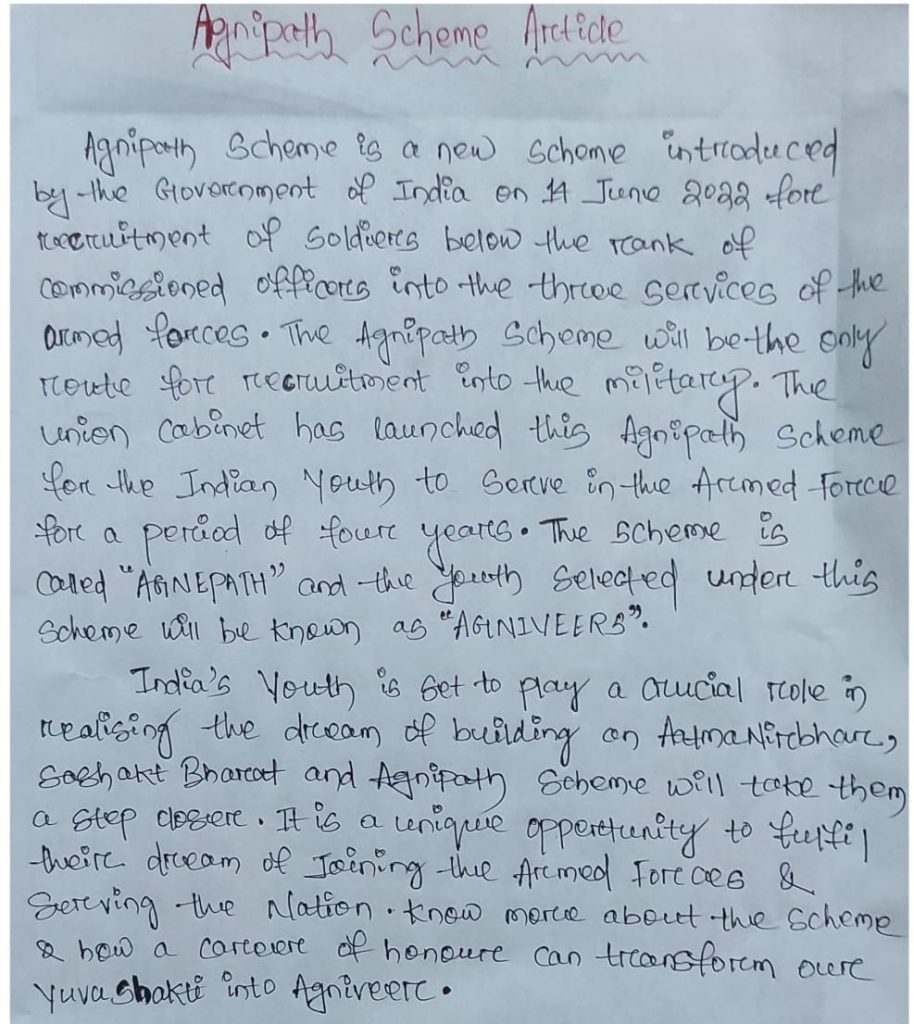 Agnipath Scheme Article
Agnipath Scheme is a new scheme introduced
by the Government of India on 14 June 2022 for
recruitment of soldiers below the rank of
commissioned officers into the three services of the
armed forces. The Agnipath Scheme will be the only
route for recruitment into the military. The
union Cabinet has launched this Agnipath Scheme
for the Indian Youth to Serve in the Armed Force
for a period of four years. The scheme is
called "AGNEPATH" and the youth selected under this
Scheme will be known as "AGNIVEERS".
India's Youth is set to play a crucial role in
realising the dream of building an AatmaNirbhar,
Sashakt Bharat and Agnipath Scheme will take them
a step closer. It is a unique opportunity to fulfil
their dream of Joining the Armed Forces &
Serving the Nation. Know more about the scheme
& how a career of honour can transform our
Yuva Shakti into Agniveer.